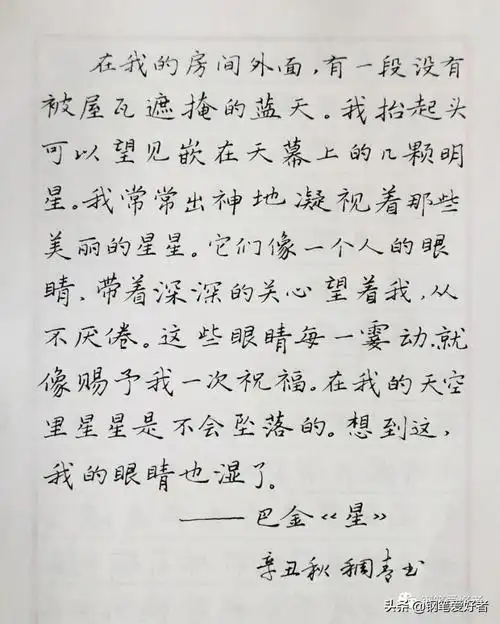 在我的房间外面,有一段没有
被屋瓦遮掩的蓝天。我抬起头
可以望见嵌在天幕上的几颗明
星。我常常出神地凝视着那些
美丽的星星。它们像一个人的眼
睛,带着深深的关心望着我,从
不厌倦。这些眼睛每一霎动,就
像赐予我一次祝福。在我的天空
里星星是不会坠落的。想到这,
我的眼睛也湿了。
——巴金《星》
辛丑秋 稠青书
头条 @钢笔爱好者